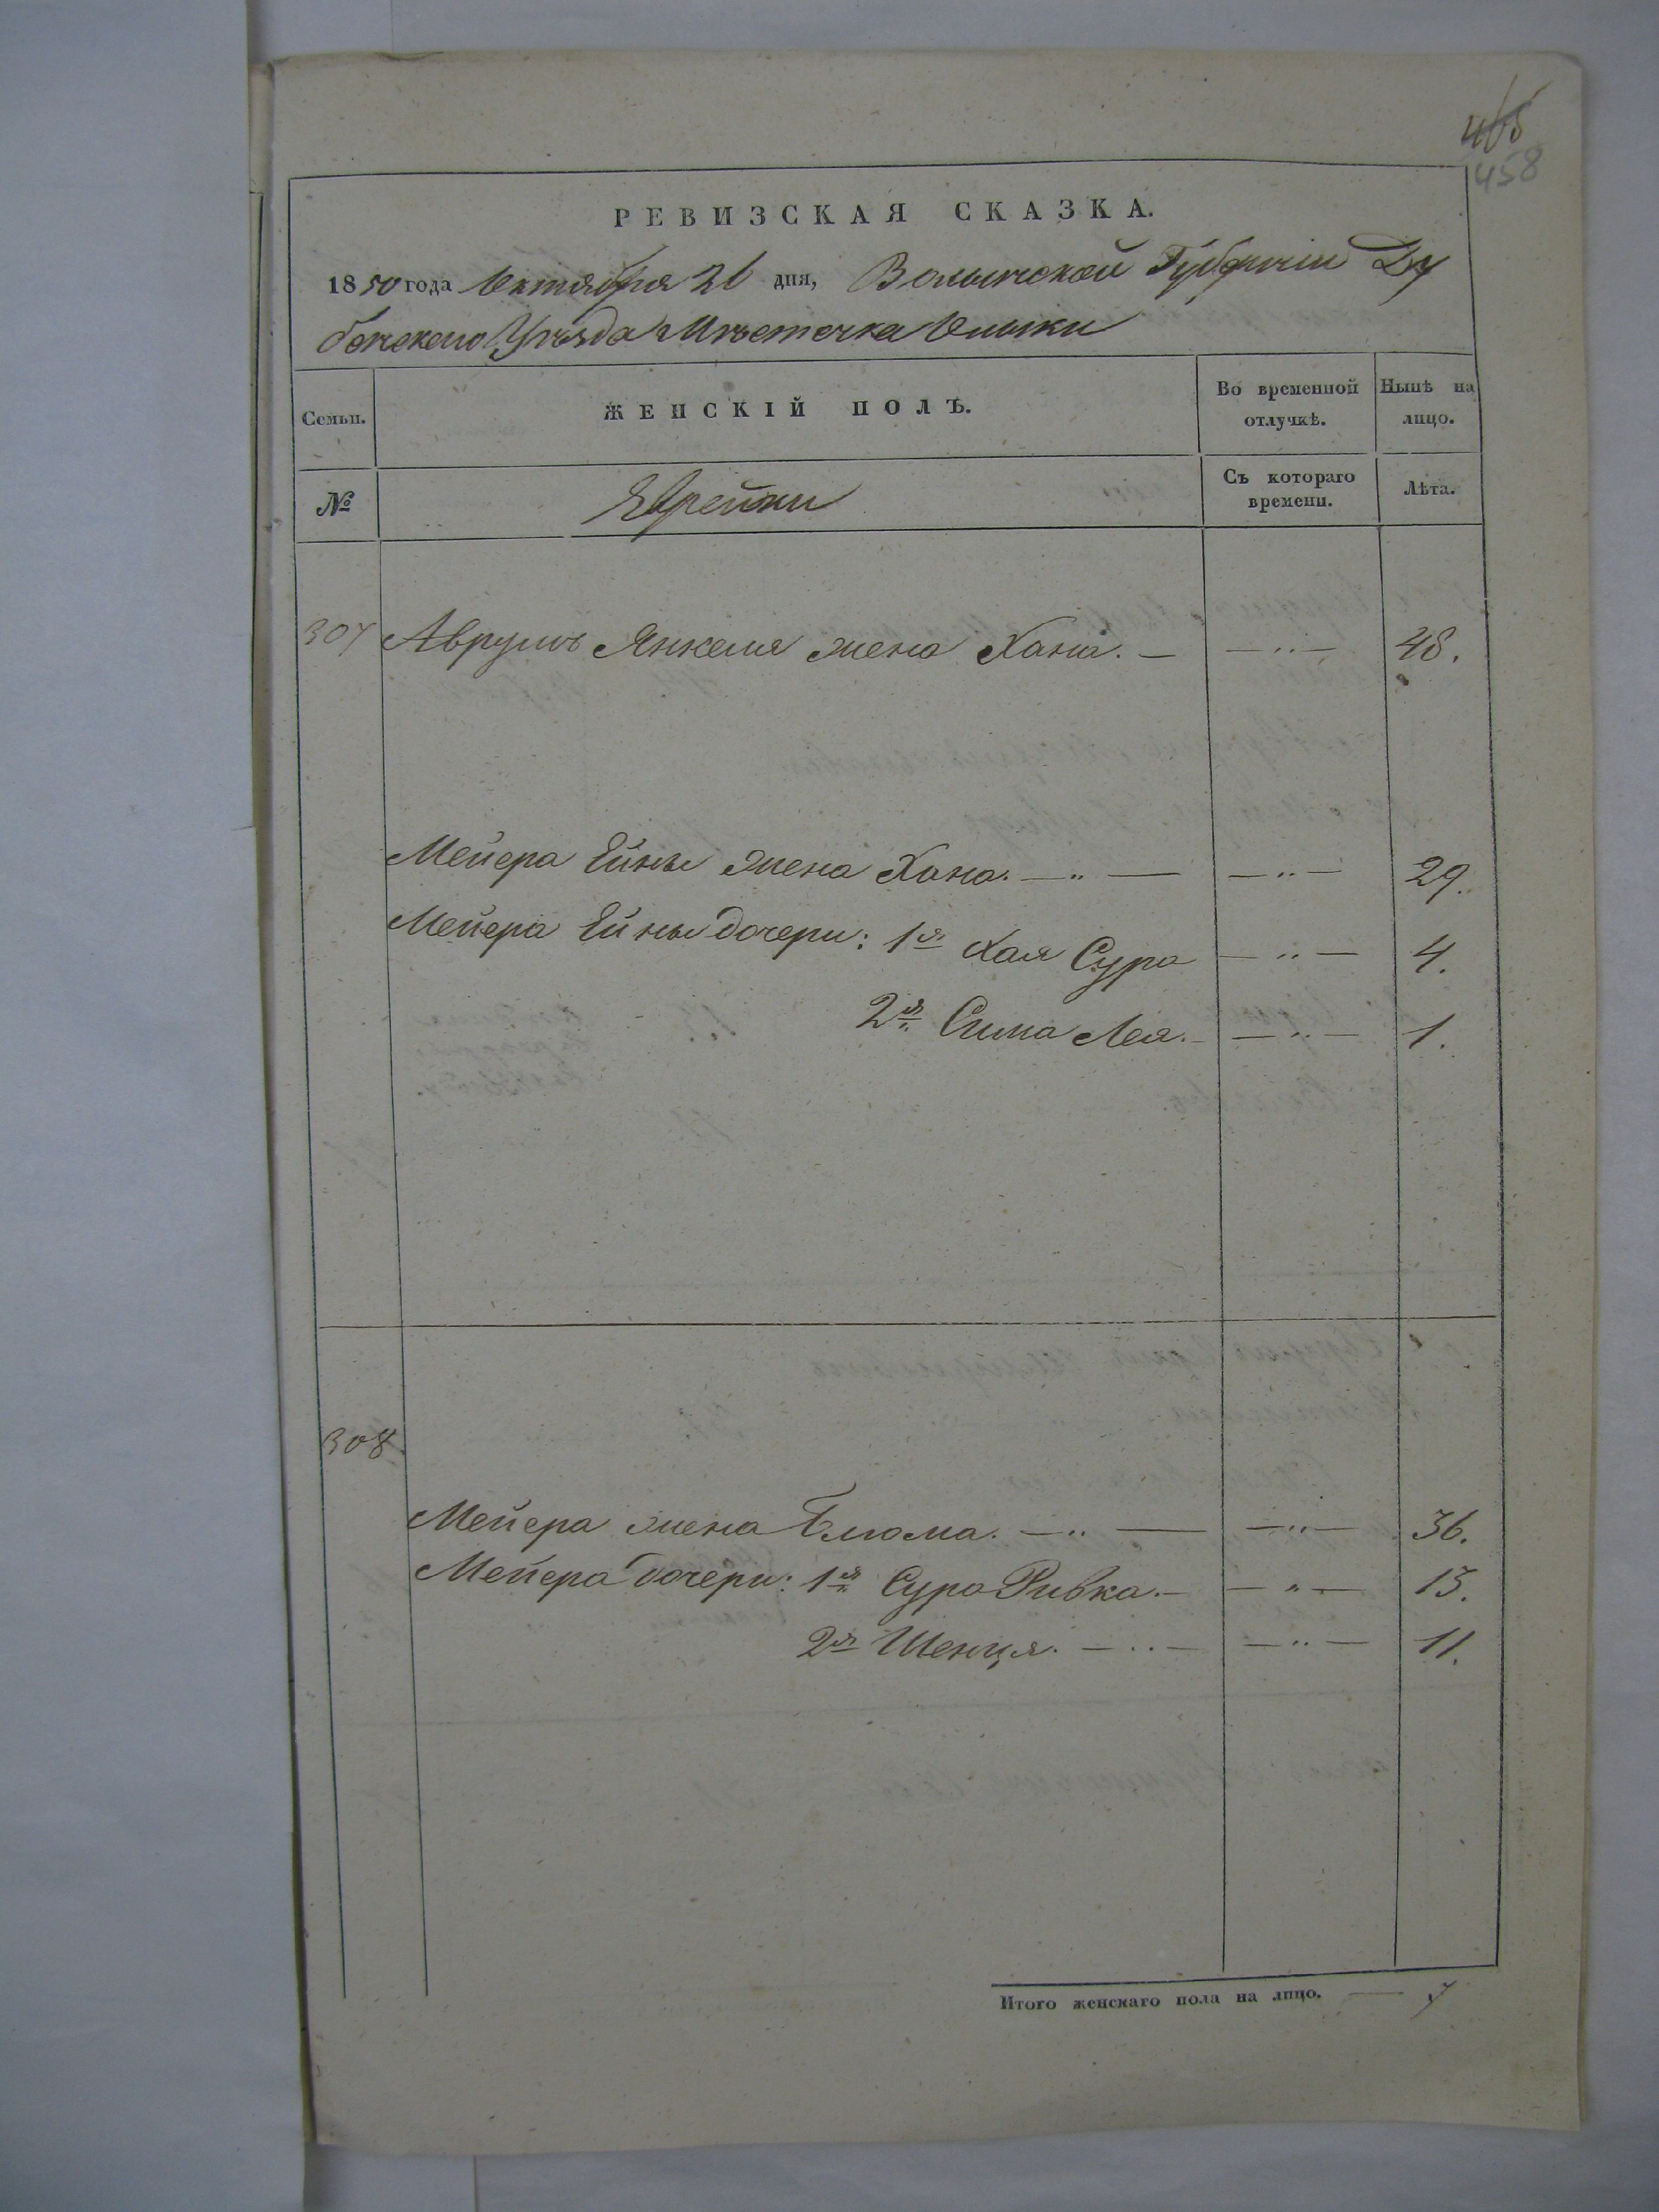 465
458
РЕВИЗСКАЯ СКАЗКА.
1850 года Октября 26 дня, Волынской Губерніи Ду
бенскаго Уѣзда Мѣстечка Олыки
Семьи. ЖЕНСКІЙ ПОЛЪ. Во временной отлучкѣ. Нынѣ на лицо.
№ Еврейки Съ котораго времени. Лѣта.
307 Аврумъ Янкеля жена Хана. — — „ — 48.
Мейера Ейны жена Хана. — „ — — „ — 29.
Мейера Ейны дочери: 1я Хая Сура — „ — 4.
2я Сима Лея. — — „ — 1.
308.
Мейера жена Блюма. — „ — — „ — 36.
Мейера дочери: 1я Сура Ривка. — — „ — 13.
2я Шенця. — „ — — „ — 11.
Итого женскаго пола на лицо. — 7